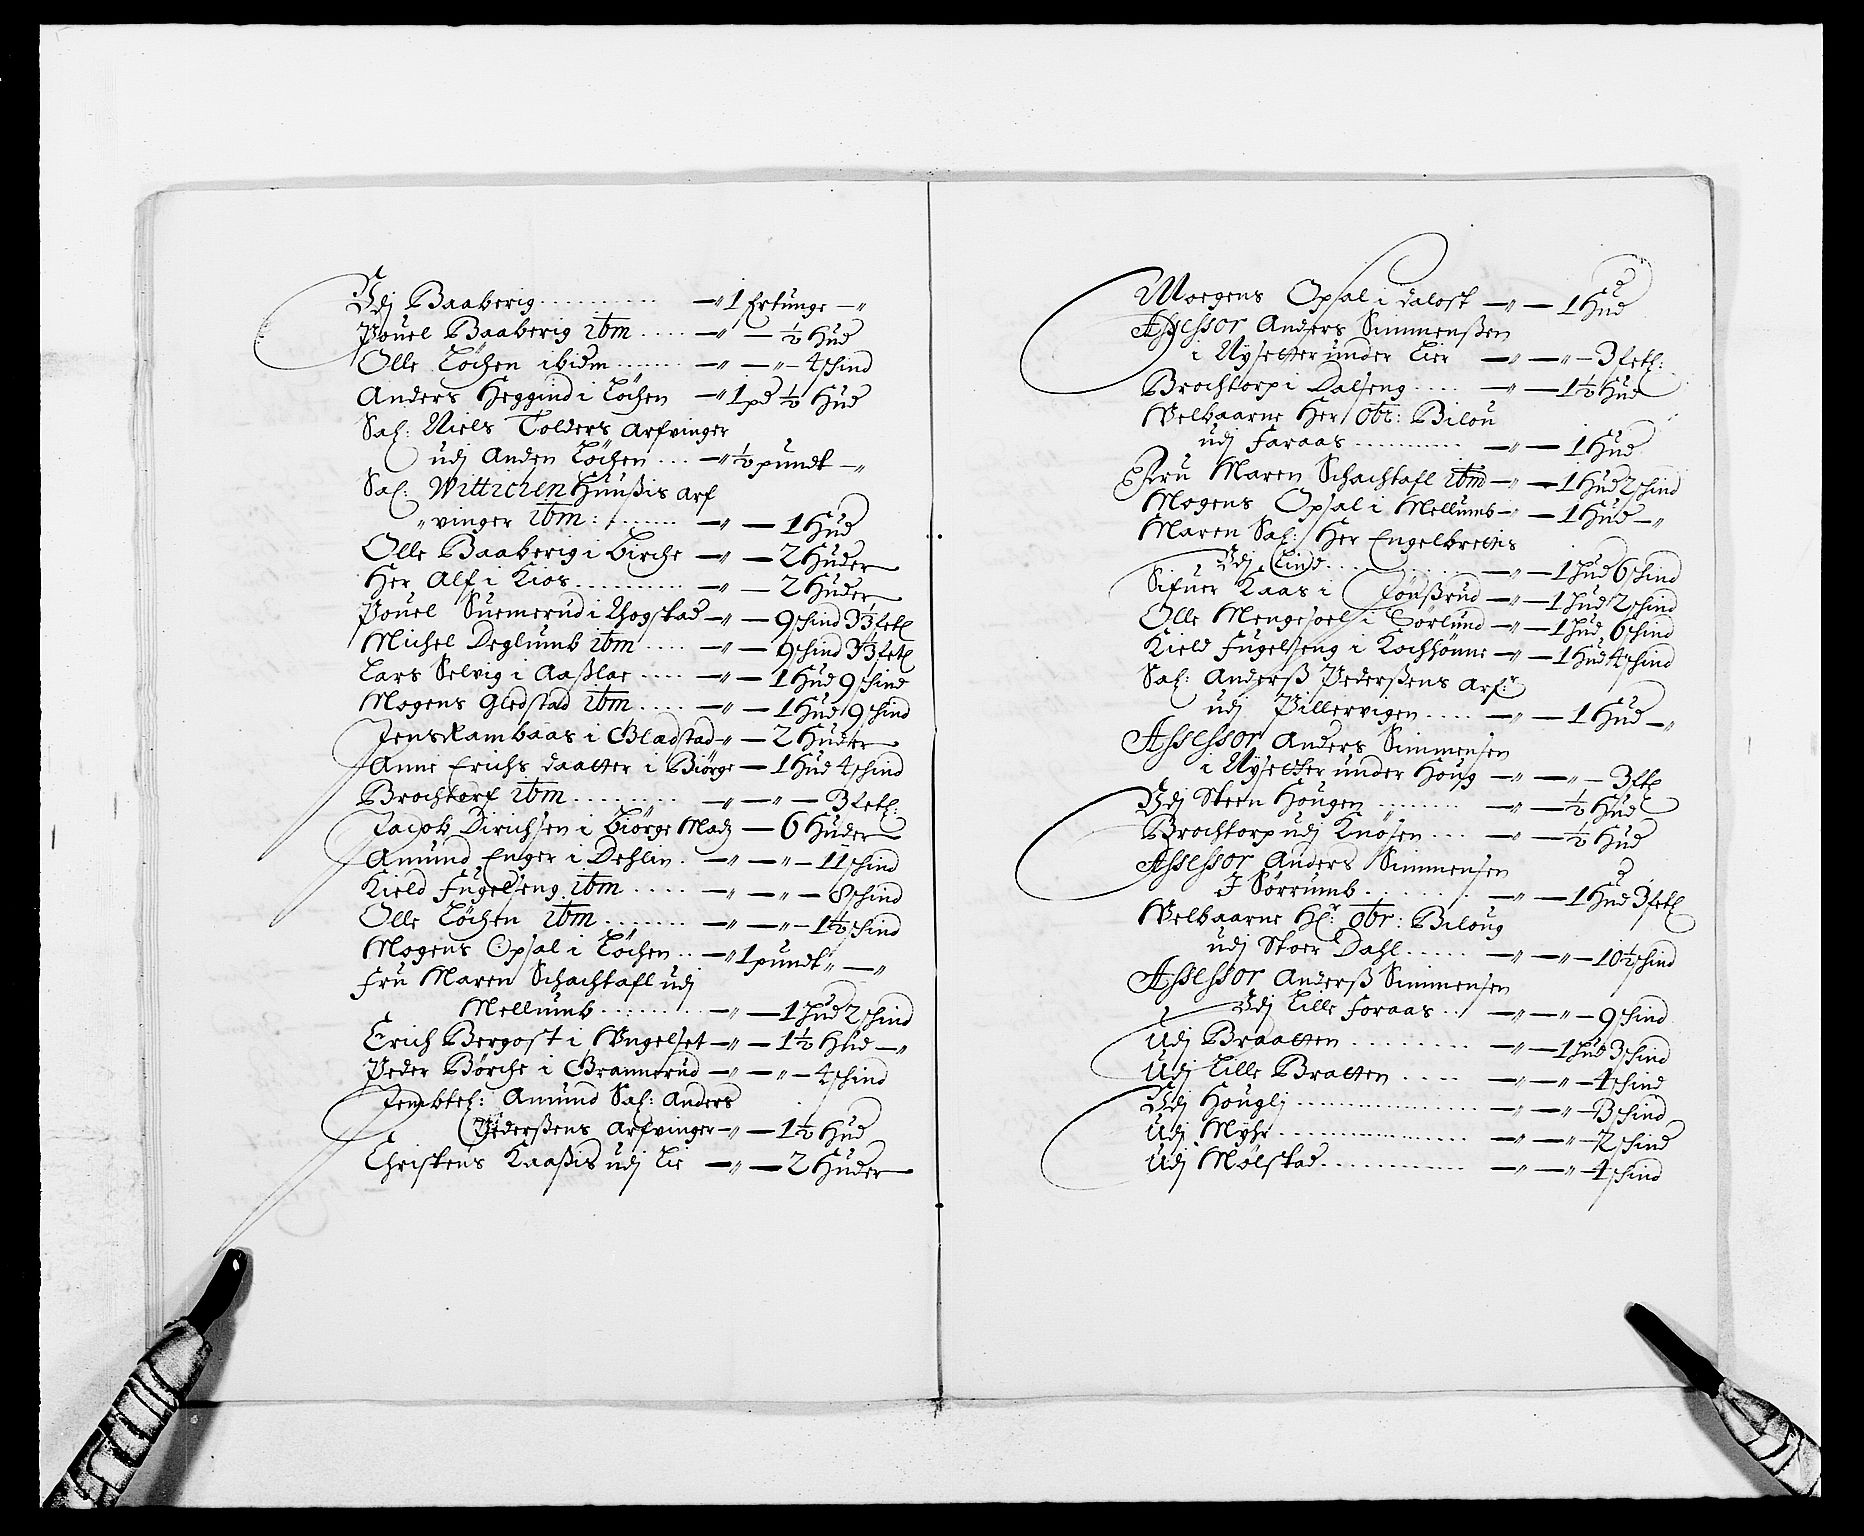 Udj Baaberig .......... —〃 1 fertunge —〃
Pouel Baaberig ibm ..... —〃 — ½ Hud
Olle Löchen ibidm ....... —〃 —〃— 4 schind
Anders Heggind i Löchen —〃 1 pd ½ Hud
Sal: Niels Tolders Arfvinger
udj Anden Löchen ... —〃 ½ pundt —〃
Sal: Wittichen Huußis Arf
〃vinger ibm: ....... —〃— 1 Hud
Olle Baaberig i Birche —〃— 2 Huder
Her Alf i Kios .......... —〃— 2 Huder
Pouel Suemerud i Schogstad —〃— 9 schind 3⅓ setl
Michel Deglumb ibm .... —〃— 9 schind 3⅓ setl
Lars Selvig i Aaßlae .... —〃— 1 Hud 9 schind
Mogens Gledstad ibm .... —〃— 1 Hud 9 schind
Jens Rambaas i Gladstad 〃— 2 Huder
Anne Erichs daatter i Biörge — 1 Hud 4 schind
Brochtorf ibm ........ —〃 —〃— 3 setl:
Jacob Dirichsen i Biörge Madz — 6 Huder
Amund Enger i Dehlin . —〃 —〃— 11 schind
Kield Fugelseng ibm ..... —〃 —〃— 8 schind
Olle Löchen ibm ....... —〃 —〃— 1½ schind
Mogens Opsal i Löchen .. —〃 1 pundt 〃 —〃
Fru Maren Schachtafl udj
Mellumb ......... —〃— 1 Hud 2 schind
Erich Bergost i Wngelset —〃— 1½ Hud —〃
Peder Börche i Grannerud —〃 —〃— 4 schind
Jembtel: Amund Sal: Anders
Pederßens Arfvinger —〃— 1½ Hud
Christens Kaaßis udj Lie —〃— 2 Huder
Moegens Opsal i dalost —〃— 1 Hud
Assessor Anders Simmenßen
i Nysetter under Lier —〃 —〃— 3 setl:
Brochtorp i Dalseng .... —〃— 1½ Hud
Welbaarne Her Obr: Bilou
udj Faraas .......... —〃— 1 Hud
Fru Maren Schachtafl ibm —〃— 1 Hud 2 schind
Mogens Opsal i Mellumb —〃— 1 Hud —〃
Maren Sal: Her Engelbretis
Udj Lind .......... —〃— 1 Hud 6 schind
Sifuer Kaas i Jönßrud —〃— 1 Hud 2 schind
Olle Mengesoel i Sörlund —〃— 1 Hud 6 schind
Kield Fugelseng i Kochhönne —〃— 1 Hud 4 schind
Sal: Anderß Pederßens Arf:r
udj Pillervigen .... —〃— 1 Hud —〃
Assessor Anders Simmensen
i Nysetter under Houg —〃 —〃— 3 setl
Udj Steen Hougen ........ —〃— ½ Hud
Brochtorp udj Knösen ... —〃— ½ Hud
Assessor Anders Simmensen
I Sörrumb ......... —〃— 1 Hud 3 setl
Welbaarne Hr: Obr: Biloug
udj Stoer Dahl ..... —〃 —〃— 10½ schind
Assessor Anderß Simmensen
Udj Lille Foraas .. —〃 —〃— 9 schind
Udj Braatten ......... —〃— 1 Hud 3 schind
Udj Lille Bratten .... —〃 —〃— 4 schind
Udj Houglj .......... —〃 —〃— 3 schind
Udj Myhr .......... —〃 —〃— 2 schind
Udj Mölstad .......... —〃 —〃— 4 schind